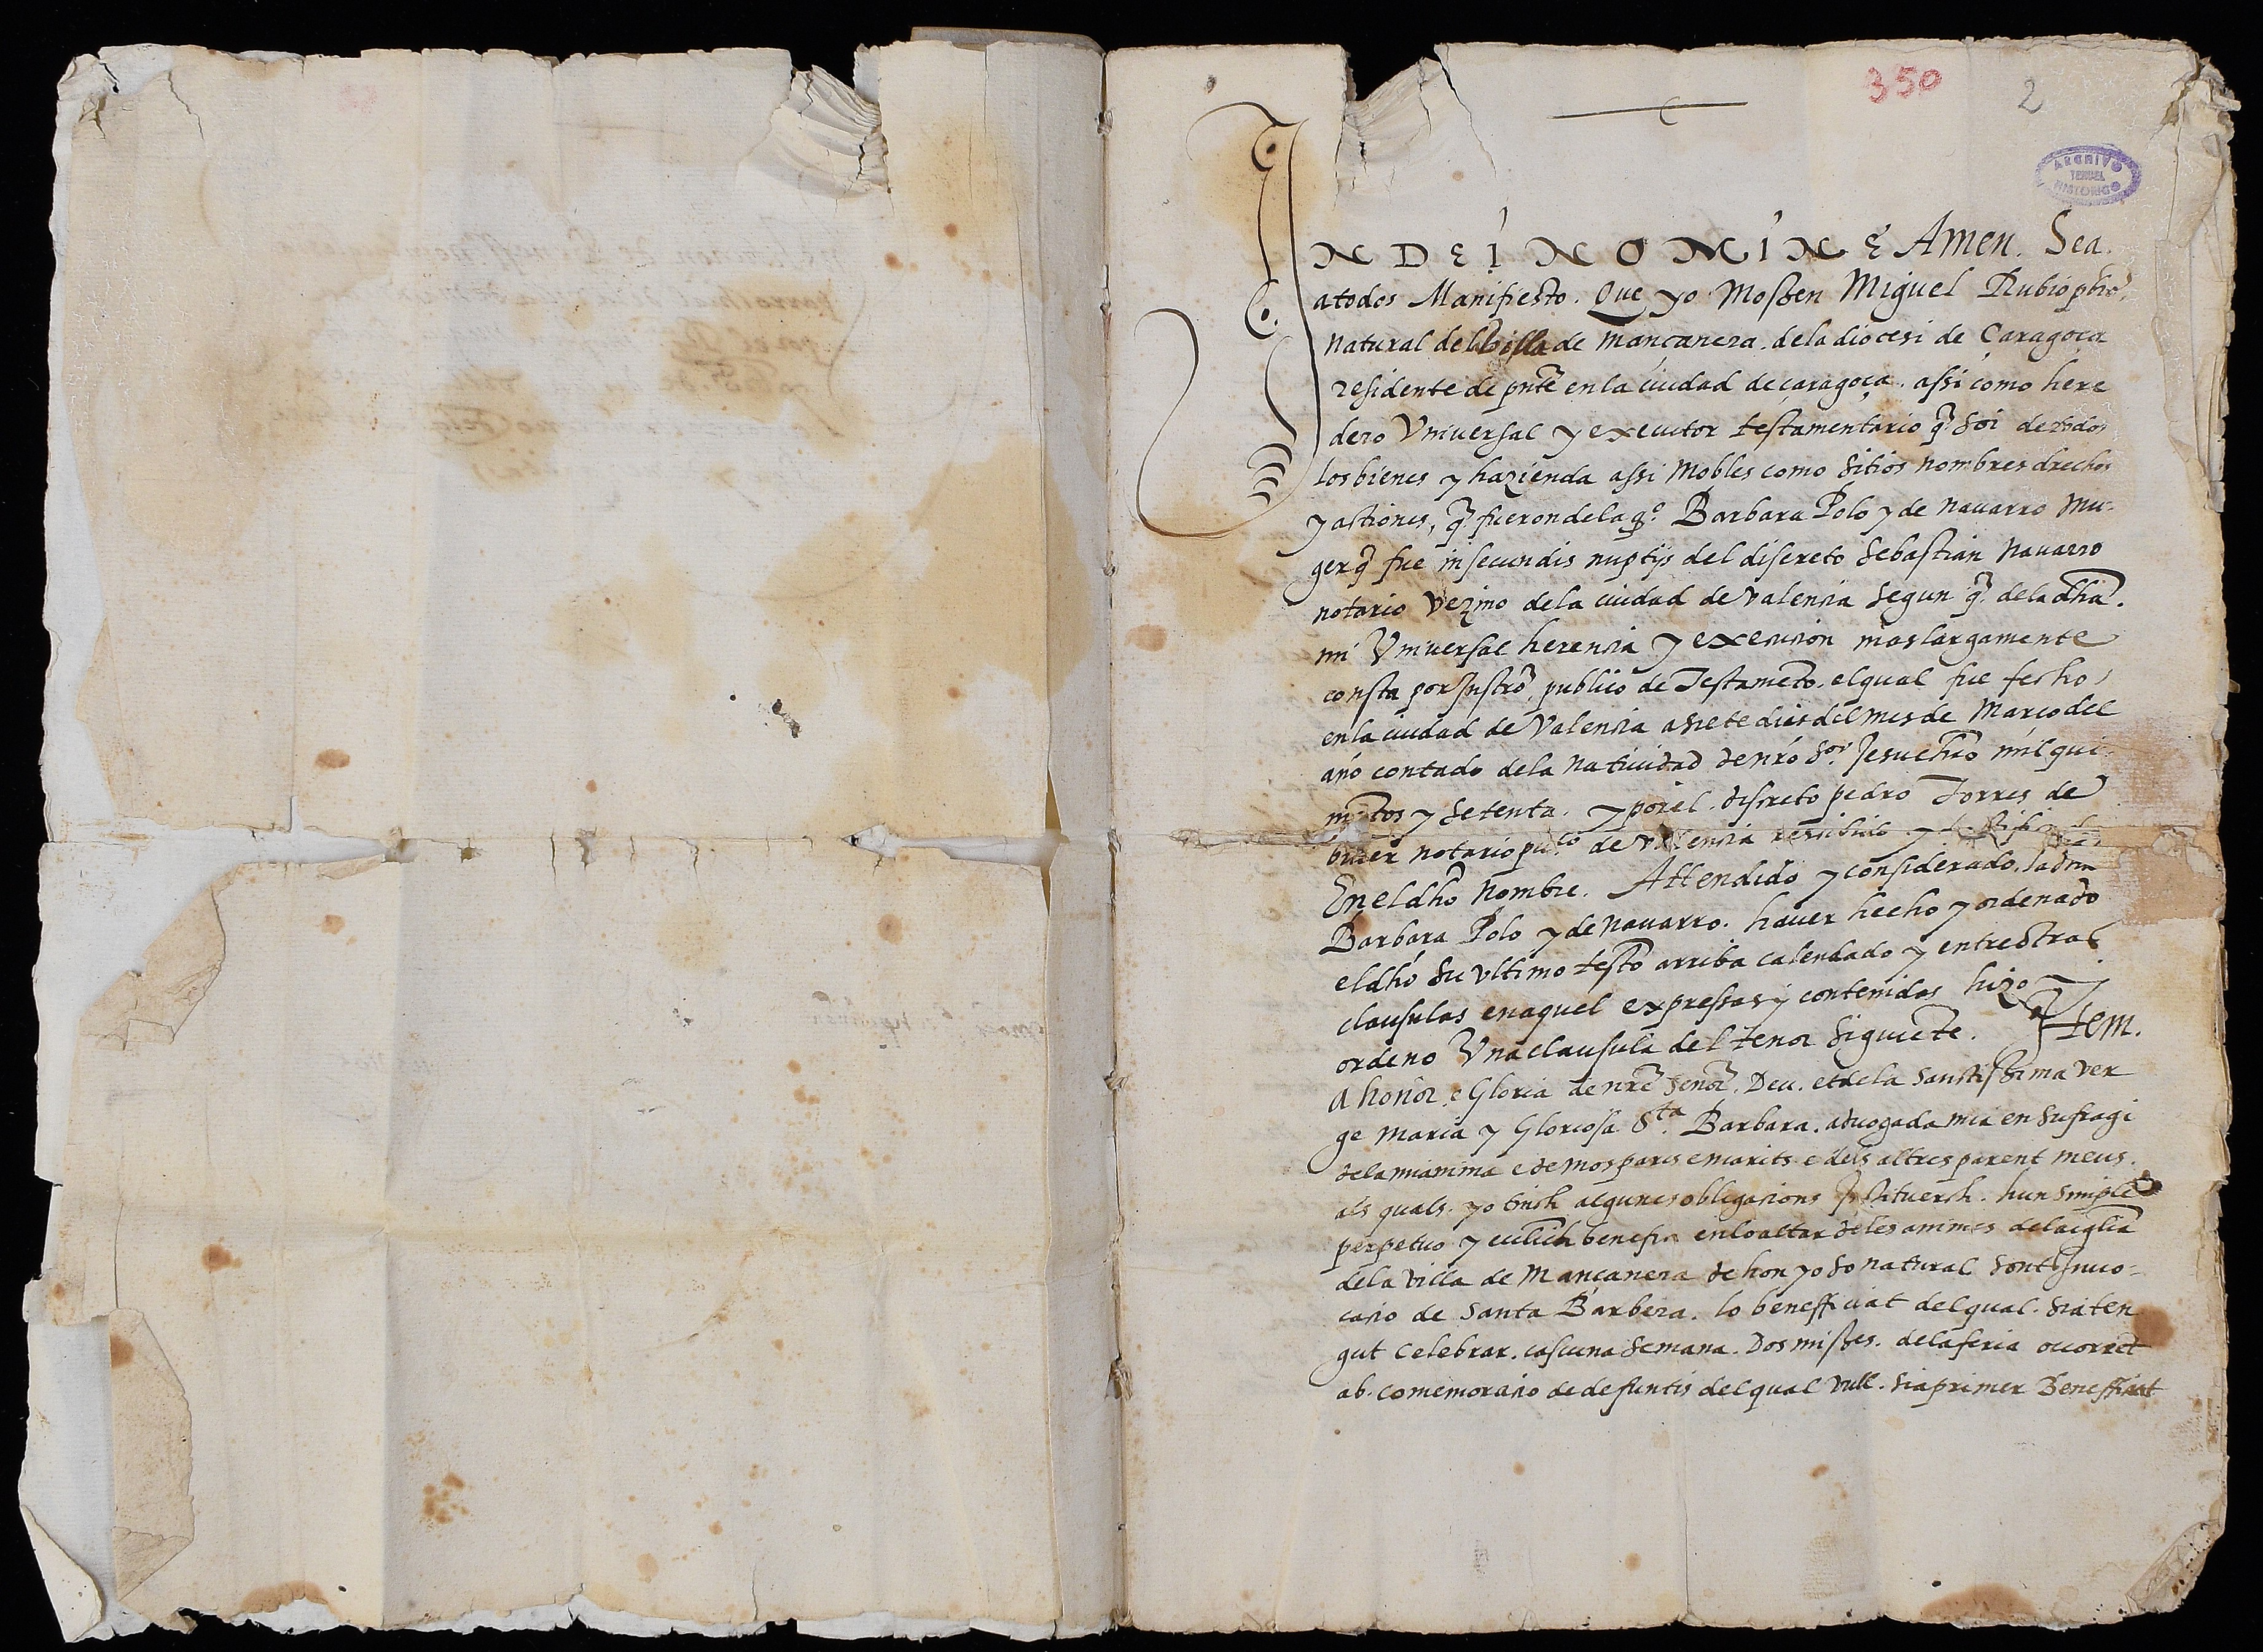 350 2
ARCHIVO
TERUEL
HISTORICO
IN DEI NOMINE Amen. Sea
a todos Manifiesto. Que yo Mossen Miguel Rubio pbro.
natural de la Villa de mancanera. de la diocesi de Çaragoça
residente de pnte en la ciudad de çaragoça. assi como here
dero Vniuersal y executor testamentario q̃ soi de todos
los bienes y hazienda assi Mobles como sitios nombres drechos
y actiones, q̃ fueron de la qº. Barbara Polo y de nauarro Mu-
ger q̃ fue in secundis nuptijs del discreto Sebastian nauarro
notario vezino de la ciudad de valencia segun q̃. de la dha.
mi Vniuersal herencia y execucion mas largamente
consta por Instro. publico de Testameto. el qual fue fecho
en la ciudad de Valencia a siete dias del mes de Março del
año contado de la natiuidad de nro Sor. Jesuchro mil qui
nietos y setenta. y por el discreto pedro Torres de
notario puco. de valencia recibido y
En el dho nombre. Attendido y considerado, la dha
Barbara Polo y de nauarro. hauer hecho y ordenado
el dho su vltimo testo arriba calendado y entre otras
clausulas en aquel expressas y contenidas hizo y
ordeno Vna clausula del tenor siguiete. Item.
A honor e Gloria de nre senor. Deu. et de la sanctissima ver
ge maria y Gloriosa Sta. Barbara. aduogada mia en sufragi
de la mia anima e de mos pares e marits e dels altres parent meus.
als quals. yo tinch algunes obligacions Instituesch. hun simple
perpetuo y benefici en lo altar de les animes de la iglia
de la villa de Mançanera de hon yo so natural sots Inuo-
cacio de Santa Barbera. lo benefficiat del qual. sia ten
gut celebrar. cascuna semana. Dos misses. de la feria occorret
ab. comemoracio de defuntis del qual vull. sia primer Benefficiat